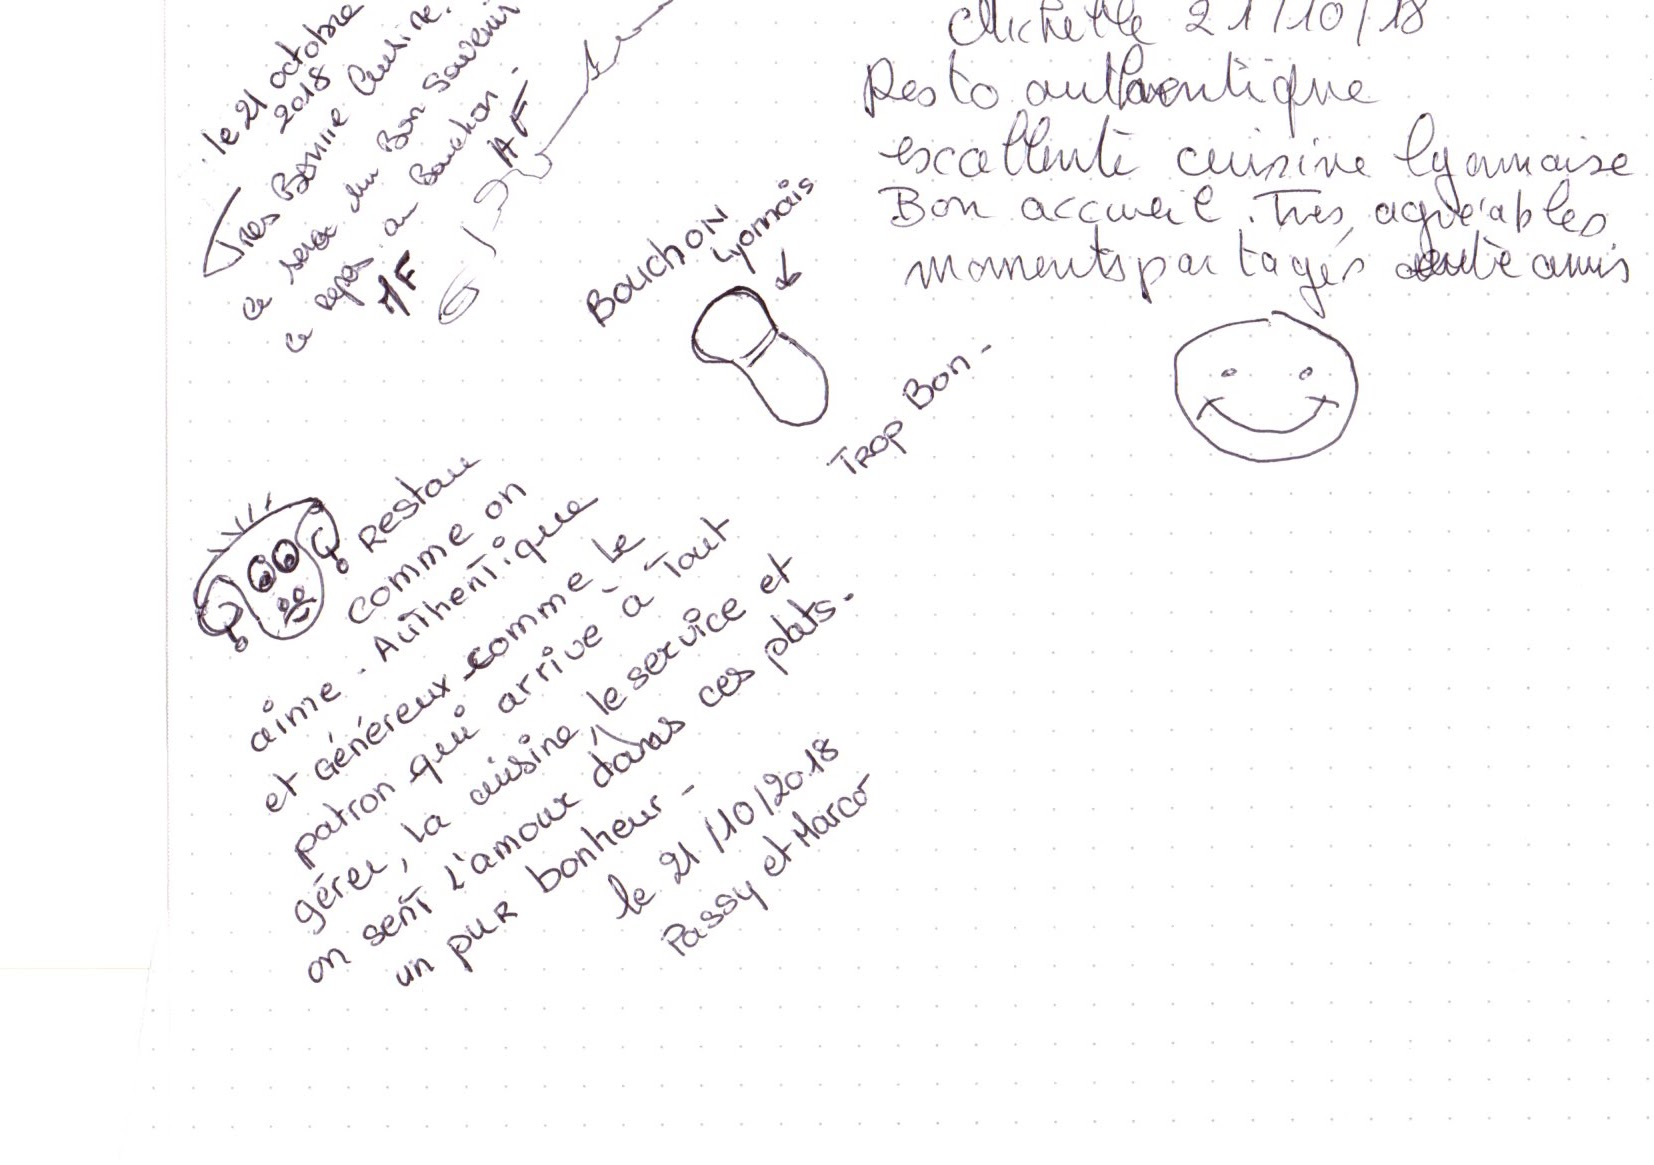 le 21 octobre
2018
Très Bonne Cuisine.
ce sera du Bon Souvenir
ce repas au Bouchon.
AF
AF
Bouchon
Lyonnais
Trop Bon -
Michelle 21/10/18
Resto authentique
excellente cuisine lyonnaise
Bon accueil. Très agréables
moments partagés entre amis
Restau
comme on
aime - Authentique
et Généreux comme le
patron qui arrive à Tout
gérer, la cuisine, le service et
on sent l'amour dans ces plats.
un pur bonheur -
le 21/10/2018
Passy et Marco